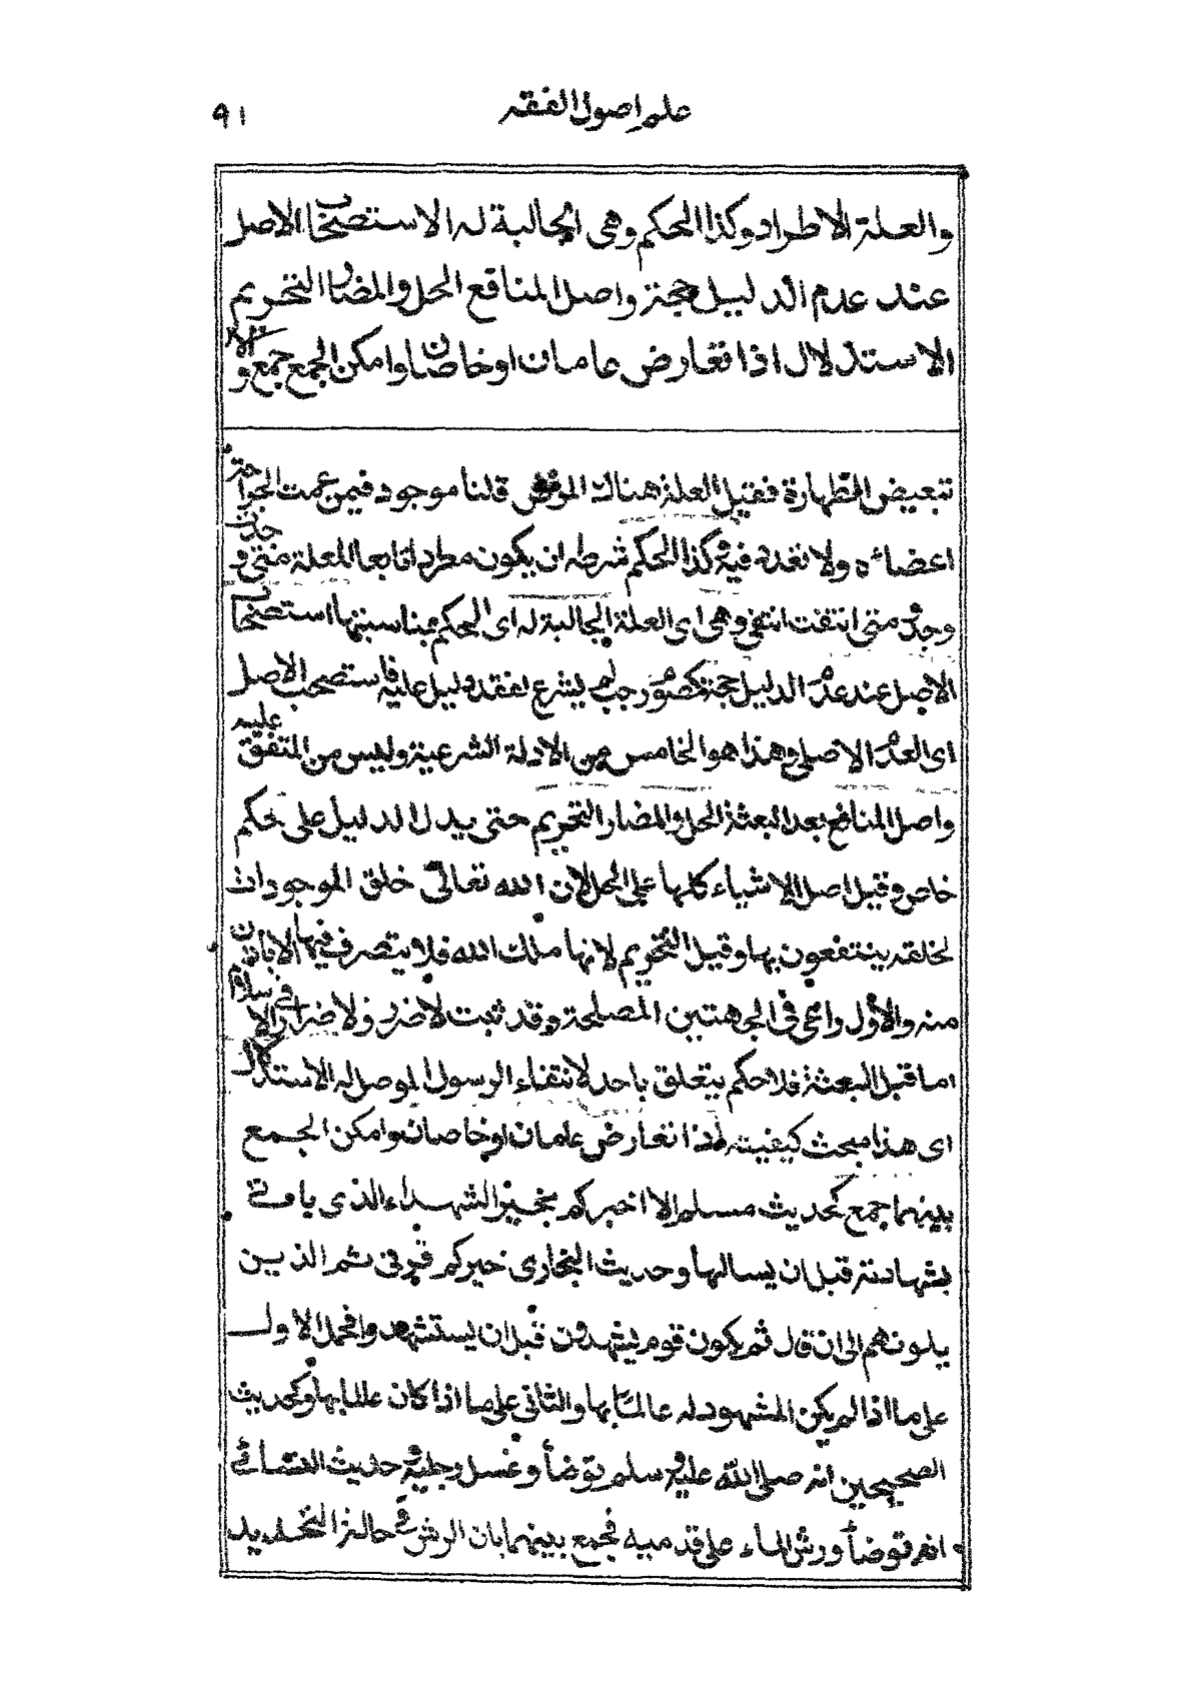 علم اصول الفقه
٩١
والعلة الاطراد وكذا الحكم وهى الجالبة له الاستصحاب الاصل
عند عدم الدليل حجة واصل المنافع الحل والمضار التحريم
الاستدلال اذا تعارض عامان او خاصان وامكن الجمع جمع والا
تبعيض الطهارة فقيل العلة هناك قلنا موجود فيمن عمت الجراحة
اعضاءه ولا تعدد فيه وكذا الحكم شرطه ان يكون مطردا تابعا للعلة متى وجدت
وجد ومتى انتفت انتفى وهى اى العلة الجالبة له اى للحكم بمناسبتها استصحاب
الاصل عند عدم الدليل حجة كصوم رجب لم يشرع لفقد دليل عليه فاستصحب الاصل
اى العدم الاصلى وهذا هو الخامس من الادلة الشرعية وليس من المتفق عليه
واصل المنافع بعد البعثة الحل والمضار التحريم حتى يدل الدليل على حكم
خاص وقيل اصل الاشياء كلها على الحل لان الله تعالى خلق الموجودات
لخلقه ينتفعون بها وقيل التحريم لانها ملك الله فلا يتصرف فيها الا باذن
منه والاول راعى فى الجهتين المصلحة وقد ثبت لا ضرر ولا ضرار فى الاسلام
اما قبل البعثة فلا حكم يتعلق باحد لانتفاء الرسول الموصل له الاستدلال
اى هذا مبحث كيفيته اذا تعارض عامان او خاصان وامكن الجمع
بينهما جمع كحديث مسلم الا اخبركم بخير الشهداء الذى ياتى
بشهادته قبل ان يسالها وحديث البخارى خيركم قرنى ثم الذين
يلونهم الى ان قال ثم يكون قوم يشهدون قبل ان يستشهدوا فحمل الاول
على ما اذا لم يكن المشهود له عالما بها والثانى على ما اذا كان عالما بها وكحديث
الصحيحين انه صلى الله عليه وسلم توضأ وغسل رجليه وحديث النسائى
انه توضأ ورش الماء على قدميه فجمع بينهما بان الرش فى حالة التجديد